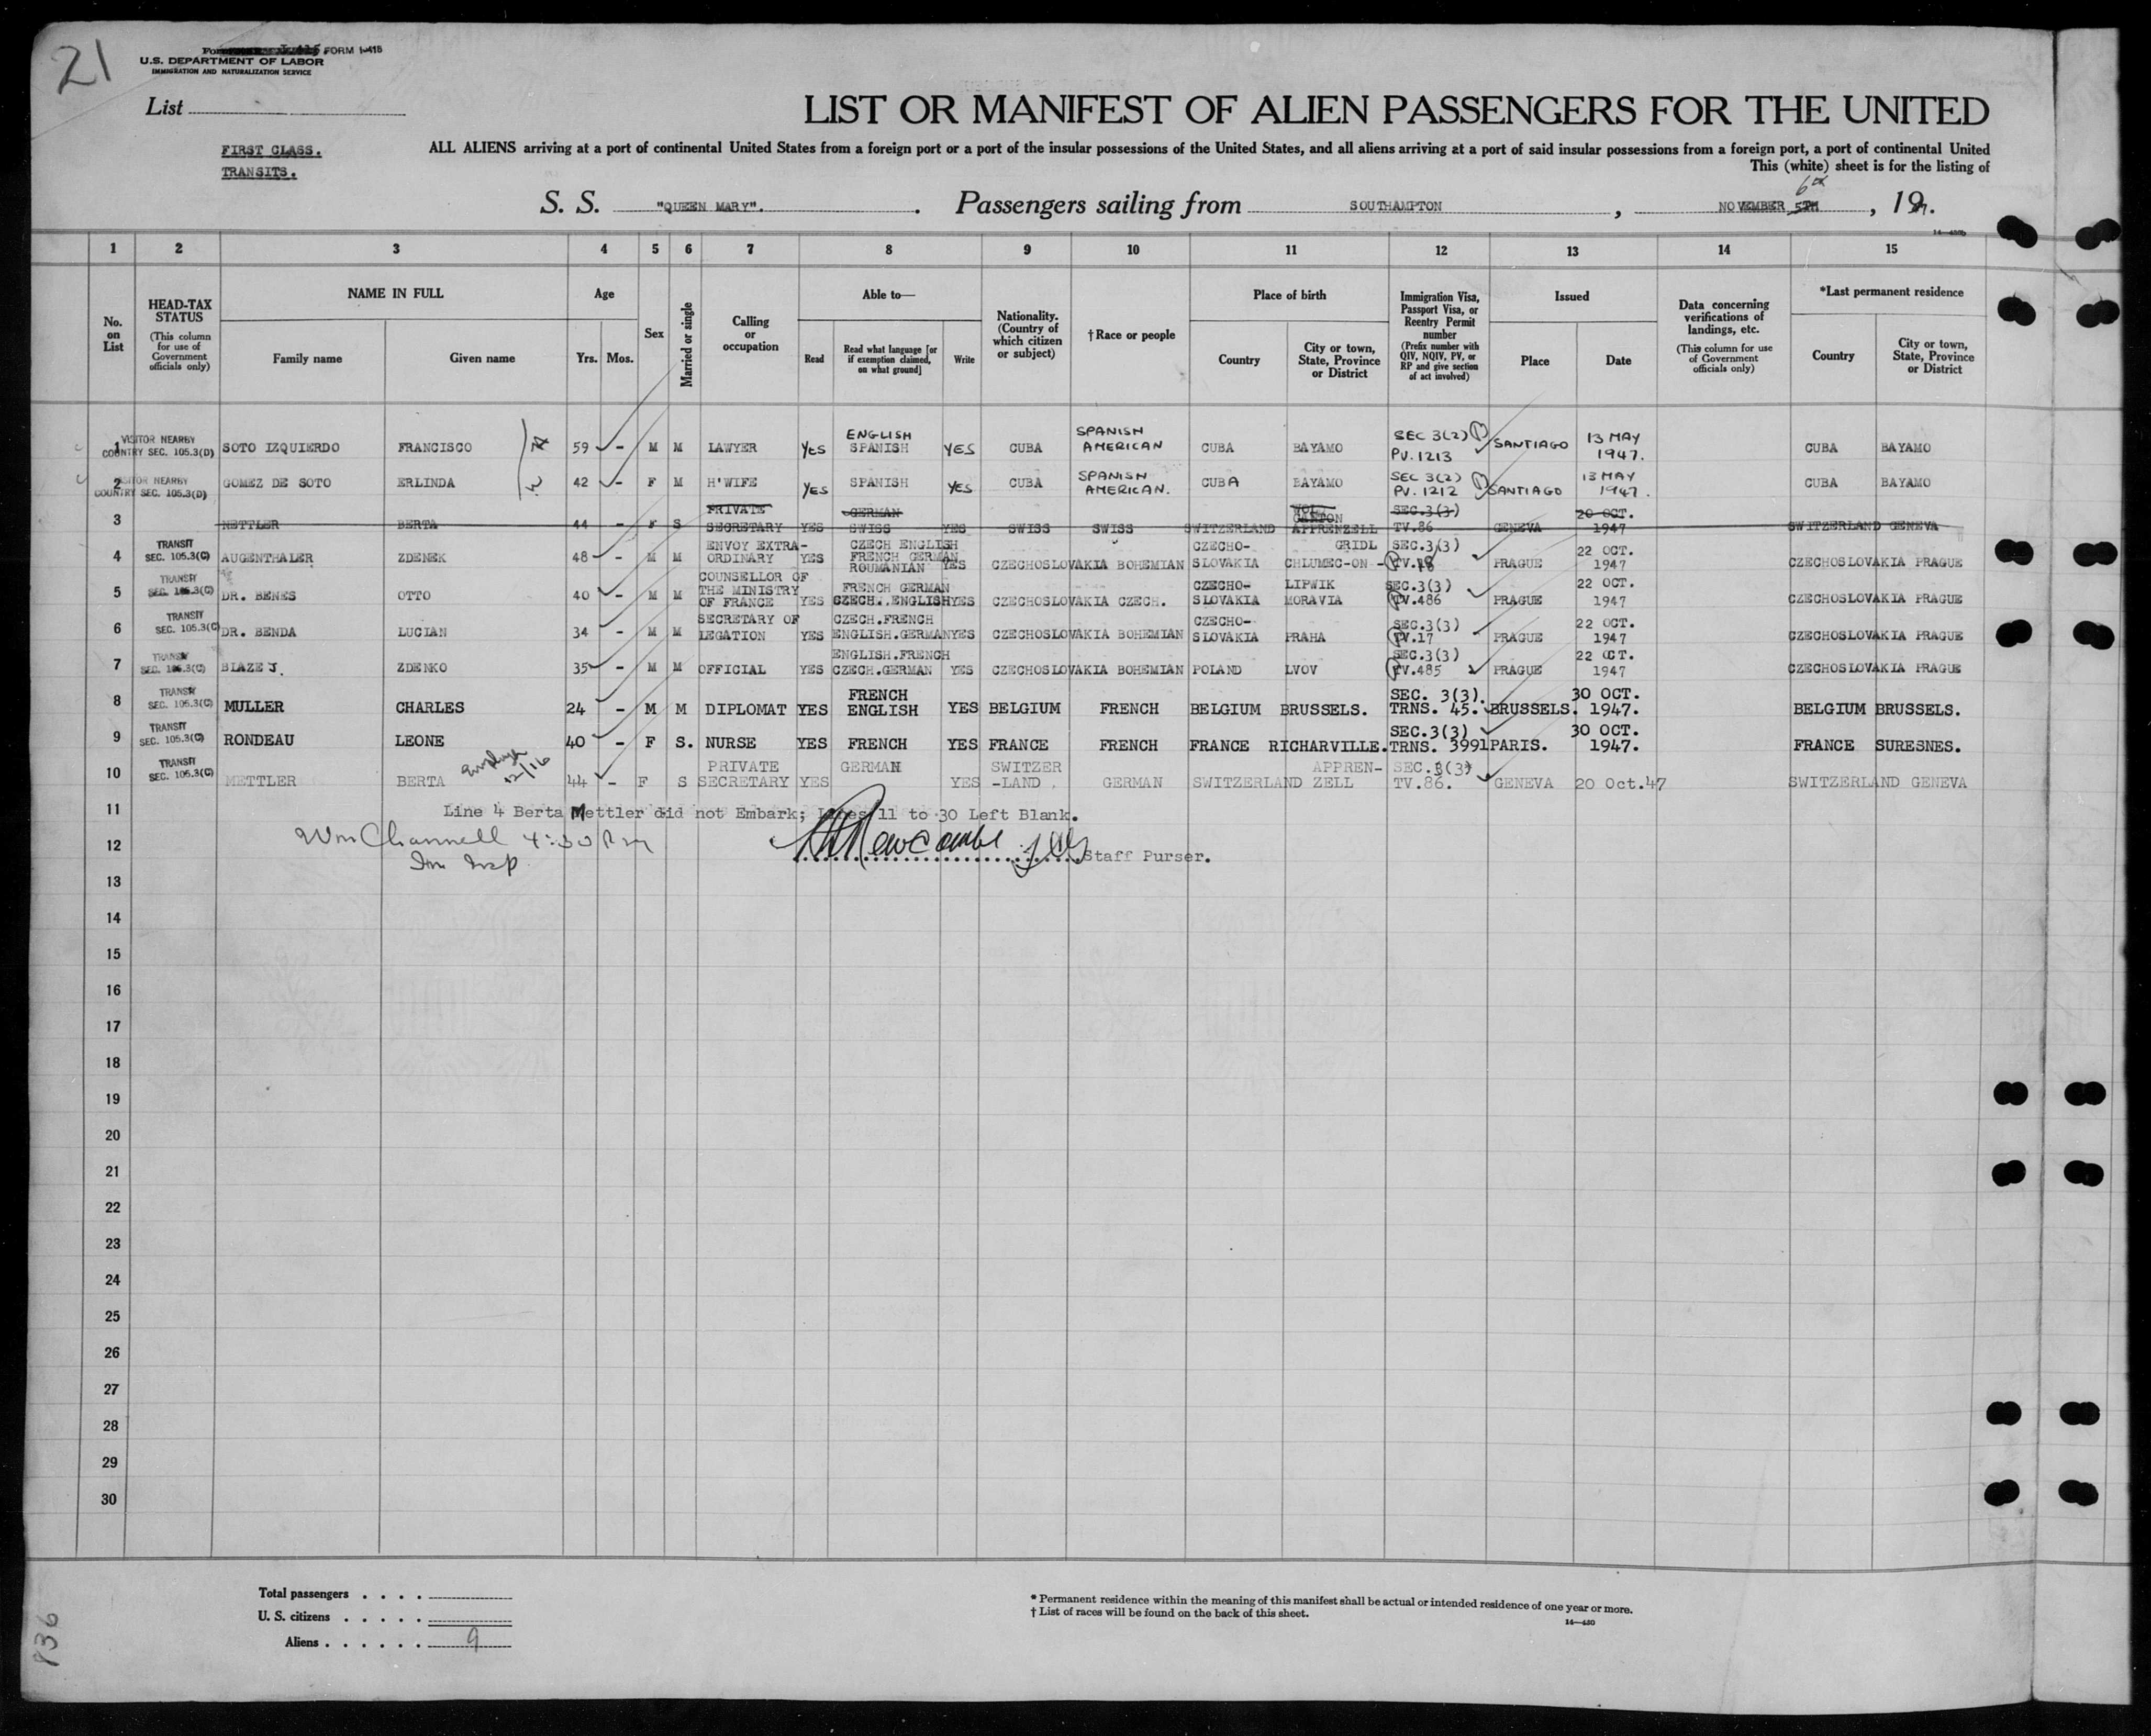 21
FORM I-415
U.S. DEPARTMENT OF LABOR
IMMIGRATION AND NATURALIZATION SERVICE
List
LIST OR MANIFEST OF ALIEN PASSENGERS FOR THE UNITED
FIRST CLASS.
TRANSITS.
ALL ALIENS arriving at a port of continental United States from a foreign port or a port of the insular possessions of the United States, and all aliens arriving at a port of said insular possessions from a foreign port, a port of continental United
This (white) sheet is for the listing of
S. S. "QUEEN MARY". Passengers sailing from SOUTHAMPTON, NOVEMBER 5TH 6th, 1947.
1 2 3 4 5 6 7 8 9 10 11 12 13 14 15
No. on List
HEAD-TAX STATUS (This column for use of Government officials only)
NAME IN FULL
Family name Given name
Age
Yrs. Mos.
Sex
Married or single
Calling or occupation
Able to—
Read Read what language [or if exemption claimed, on what ground] Write
Nationality. (Country of which citizen or subject)
†Race or people
Place of birth
Country City or town, State, Province or District
Immigration Visa, Passport Visa, or Reentry Permit number (Prefix number with QIV, NQIV, PV, or RP and give section of act involved)
Issued
Place Date
Data concerning verifications of landings, etc. (This column for use of Government officials only)
*Last permanent residence
Country City or town, State, Province or District
1 VISITOR NEARBY COUNTRY SEC. 105.3(D) SOTO IZQUIERDO FRANCISCO 59 - M M LAWYER YES ENGLISH SPANISH YES CUBA SPANISH AMERICAN CUBA BAYAMO SEC 3(2) PV. 1213 SANTIAGO 13 MAY 1947. CUBA BAYAMO
2 VISITOR NEARBY COUNTRY SEC. 105.3(D) GOMEZ DE SOTO ERLINDA 42 - F M H'WIFE YES SPANISH YES CUBA SPANISH AMERICAN. CUBA BAYAMO SEC 3(2) PV. 1212 SANTIAGO 13 MAY 1947. CUBA BAYAMO
3 METTLER BERTA 44 - F S PRIVATE SECRETARY YES GERMAN SWISS YES SWISS SWISS SWITZERLAND CANTON APPRENZELL SEC.3(3) TV.86 GENEVA 20 OCT. 1947 SWITZERLAND GENEVA
4 TRANSIT SEC. 105.3(C) AUGENTHALER ZDENEK 48 - M M ENVOY EXTRA-ORDINARY YES CZECH ENGLISH FRENCH GERMAN ROUMANIAN YES CZECHOSLOVAKIA BOHEMIAN CZECHO-SLOVAKIA GRIDL CHLUMEC-ON - SEC.3(3) TV.18 PRAGUE 22 OCT. 1947 CZECHOSLOVAKIA PRAGUE
5 TRANSIT SEC. 105.3(C) DR. BENES OTTO 40 - M M COUNSELLOR OF THE MINISTRY OF FRANCE YES FRENCH GERMAN CZECH. ENGLISH YES CZECHOSLOVAKIA CZECH. CZECHO-SLOVAKIA LIPWIK MORAVIA SEC.3(3) TV.486 PRAGUE 22 OCT. 1947 CZECHOSLOVAKIA PRAGUE
6 TRANSIT SEC. 105.3(C) DR. BENDA LUCIAN 34 - M M SECRETARY OF LEGATION YES CZECH.FRENCH ENGLISH.GERMAN YES CZECHOSLOVAKIA BOHEMIAN CZECHO-SLOVAKIA PRAHA SEC.3(3) TV.17 PRAGUE 22 OCT. 1947 CZECHOSLOVAKIA PRAGUE
7 TRANSIT SEC. 105.3(C) BLAZE J. ZDENKO 35 - M M OFFICIAL YES ENGLISH.FRENCH CZECH.GERMAN YES CZECHOSLOVAKIA BOHEMIAN POLAND LVOV SEC.3(3) TV.485 PRAGUE 22 OCT. 1947 CZECHOSLOVAKIA PRAGUE
8 TRANSIT SEC. 105.3(C) MULLER CHARLES 24 - M M DIPLOMAT YES FRENCH ENGLISH YES BELGIUM FRENCH BELGIUM BRUSSELS. SEC. 3(3). TRNS. 45. BRUSSELS. 30 OCT. 1947. BELGIUM BRUSSELS.
9 TRANSIT SEC. 105.3(C) RONDEAU LEONE 40 - F S. NURSE YES FRENCH YES FRANCE FRENCH FRANCE RICHARVILLE. SEC.3(3) TRNS. 3991 PARIS. 30 OCT. 1947. FRANCE SURESNES.
10 TRANSIT SEC. 105.3(C) METTLER BERTA 12/16 44 - F S PRIVATE SECRETARY YES GERMAN YES SWITZER-LAND. GERMAN SWITZERLAND APPREN-ZELL SEC.3(3) TV.86. GENEVA 20 Oct.47 SWITZERLAND GENEVA
11 Line 4 Berta Mettler did not Embark; Lines 11 to 30 Left Blank.
12 Wm Channell 4:30 Pm Newcombe Staff Purser.
Im Insp
13
14
15
16
17
18
19
20
21
22
23
24
25
26
27
28
29
30
Total passengers . . . .
U. S. citizens . . . . .
Aliens . . . . . . 9
* Permanent residence within the meaning of this manifest shall be actual or intended residence of one year or more.
† List of races will be found on the back of this sheet.
14—430
836